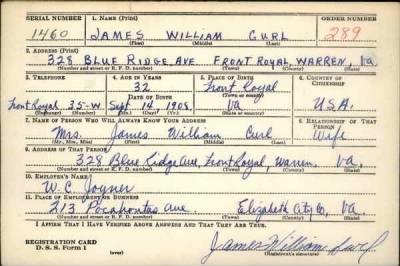 SERIAL NUMBER 1. NAME (Print) ORDER NUMBER
1460 JAMES WILLIAM CURL 289
(First) (Middle) (Last)
2. ADDRESS (Print)
328 BLUE RIDGE AVE FRONT ROYAL, WARREN, Va
(Number and street or R. F. D. number) (Town) (County) (State)
3. TELEPHONE 4. AGE IN YEARS 5. PLACE OF BIRTH 6. COUNTRY OF CITIZENSHIP
32 Front Royal
DATE OF BIRTH (Town or county)
Front Royal 35-W Sept 14, 1908 Va U.S.A.
(Exchange) (Number) (Mo.) (Day) (Yr.) (State or country)
7. NAME OF PERSON WHO WILL ALWAYS KNOW YOUR ADDRESS 8. RELATIONSHIP OF THAT PERSON
Mrs. James William Curl Wife
(Mr., Mrs., Miss) (First) (Middle) (Last)
9. ADDRESS OF THAT PERSON
328 Blue Ridge Ave, Front Royal, Warren, Va.
(Number and street or R. F. D. number) (Town) (County) (State)
10. EMPLOYER'S NAME
W. C. Joyner
11. PLACE OF EMPLOYMENT OR BUSINESS
213 Pocahontas Ave Elizabeth City Co, Va.
(Number and street or R. F. D. number) (Town) (County) (State)
I AFFIRM THAT I HAVE VERIFIED ABOVE ANSWERS AND THAT THEY ARE TRUE.
REGISTRATION CARD
D. S. S. Form 1 (over) James William Curl
(Registrant's signature)